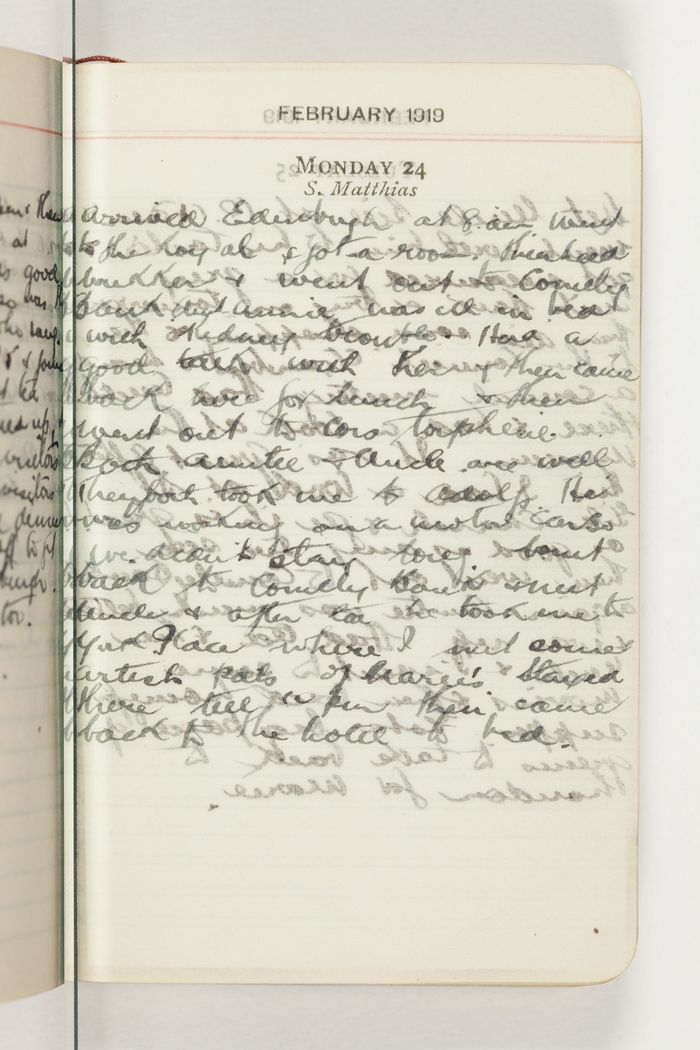 FEBRUARY 1919
MONDAY 24
S. Matthias
Arrived Edinburgh at 8 am went
to the royal & got a room. Then had
brekker & went out to Comely
Bank but Annie was ill in bed
with kidney trouble. Had a
good talk with her & then came
back here for lunch & then
went out to Corstorphine.
Both Auntie & Uncle are well
They both took me to Adolf. He
was working on a motor car so
we didn't stay long about
back to Comely Bank & met
Uncle & after tea he took me to
York Place where I met some
artist pals of Marie's Stayed
there till 11 pm then came
back to the hotel to bed.